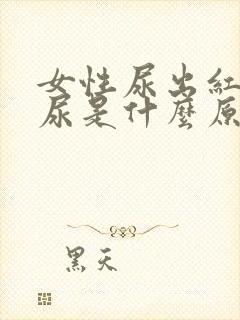 女性尿出紅
尿是什麼原
黑天